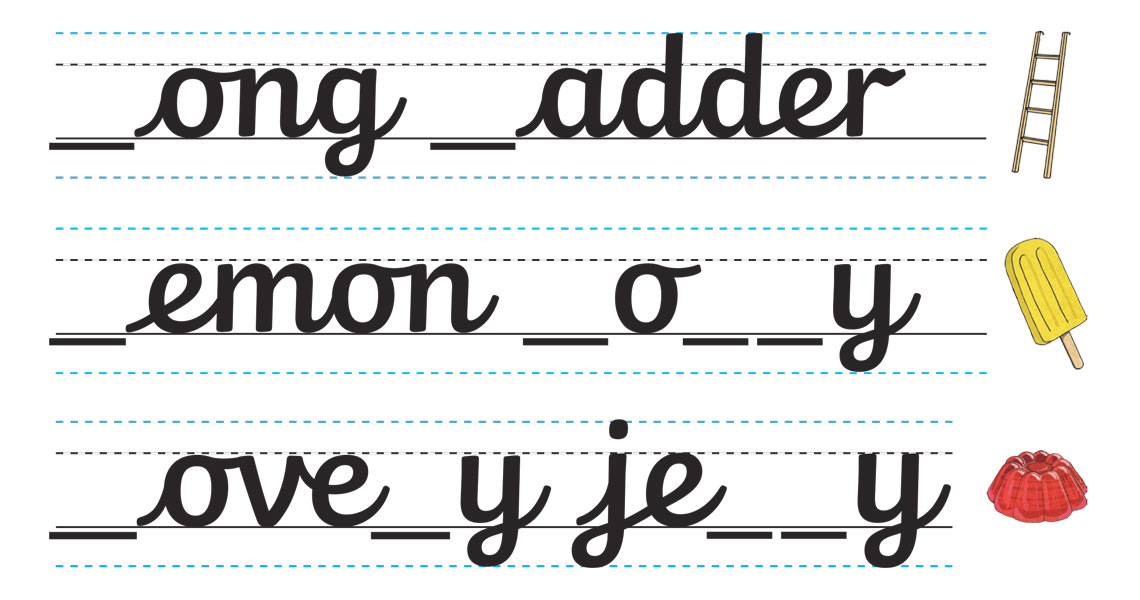 _ong _adder
_emon _o_ _y
_ove_y je_ _y